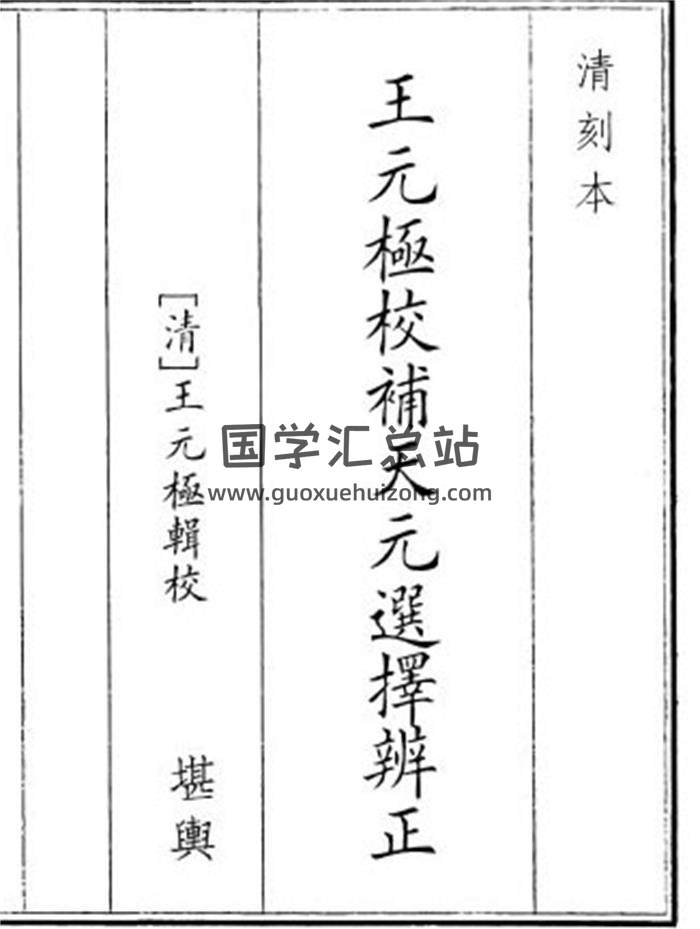 清刻本
王元極校補天元選擇辨正
[清]王元極輯校
堪輿
国学汇总站
www.guoxuehuizong.com